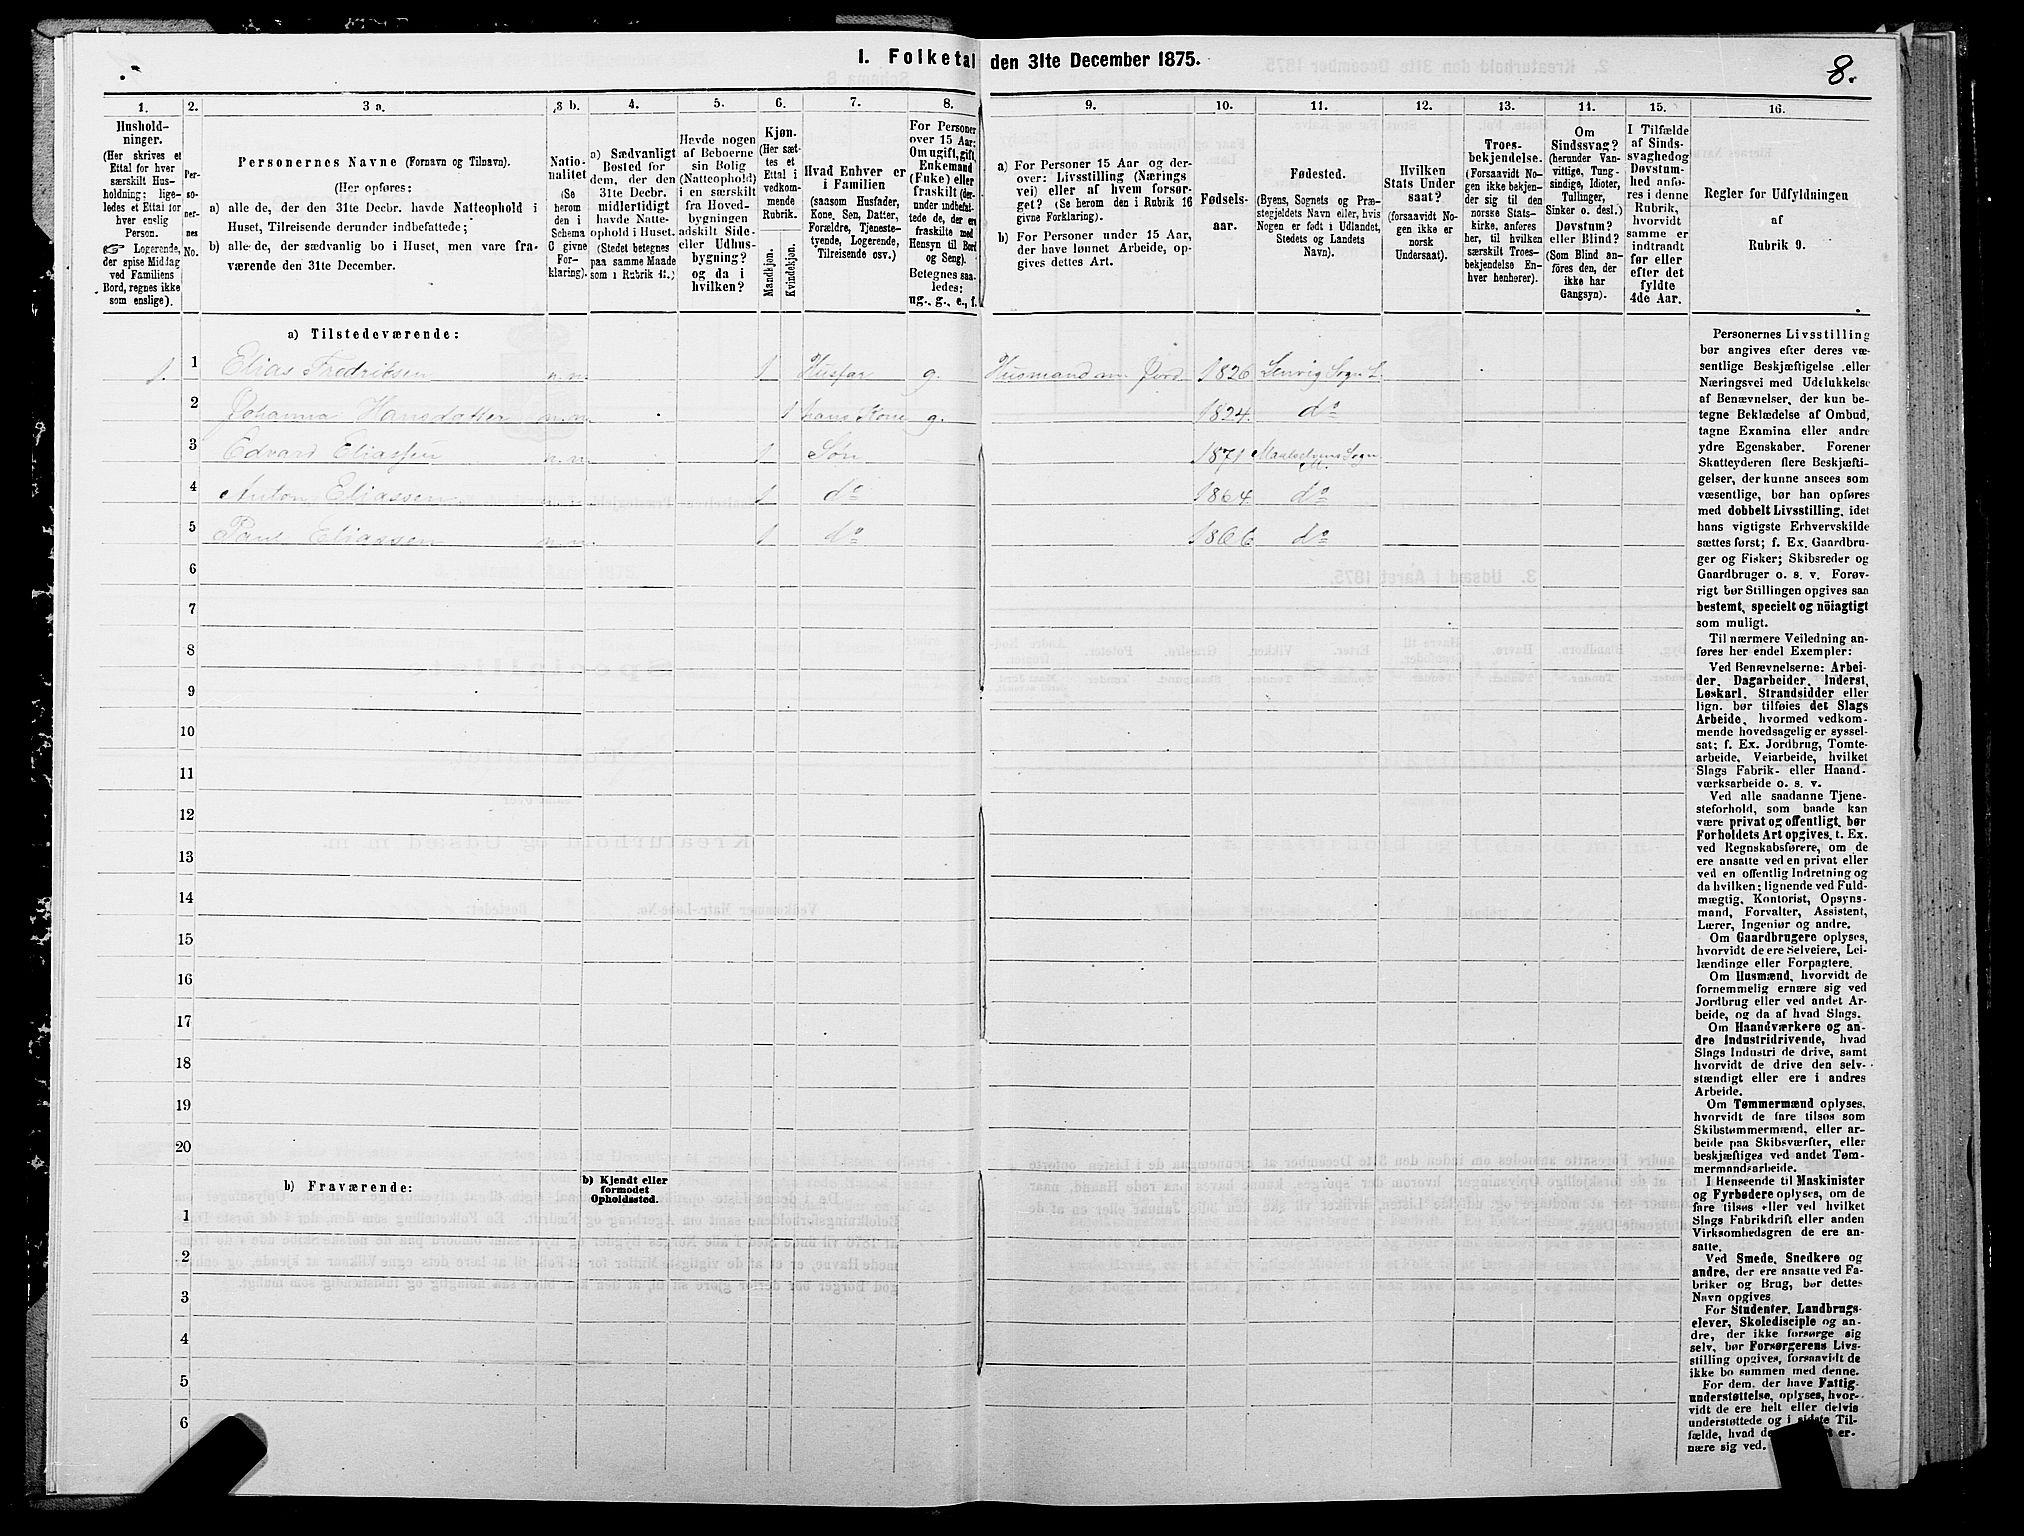 I. Folketal den 31te December 1875.
8.
1. 2. 3 a. 3 b. 4. 5. 6. 7. 8. 9. 10. 11. 12. 13. 14. 15. 16.
Hushold-
ninger.
(Her skrives et
Ettal for hver
særskilt Hus-
holdning; lige-
ledes et Ettal for
hver enslig
Person.
☞ Logerende,
der spise Middag
ved Familiens
Bord, regnes ikke
som enslige).
Per-
so-
ner-
nes
No.
Personernes Navne (Fornavn og Tilnavn).
(Her opføres:
a) alle de, der den 31te Decbr. havde Natteophold i
Huset, Tilreisende derunder indbefattede;
b) alle de, der sædvanlig bo i Huset, men vare fra-
værende den 31te December.
Natio-
nalitet
(Se
herom
den i
Schema
C givne
For-
klaring).
a) Sædvanligt
Bosted for
dem, der den
31te Decbr.
midlertidigt
havde Natte-
ophold i Huset.
(Stedet betegnes
paa samme Maade
som i Rubrik 11.)
Havde nogen
af Beboerne
sin Bolig
(Natteophold)
i en særskilt
fra Hoved-
bygningen
adskilt Side-
eller Udhus-
bygning?
og da i
hvilken?
Kjøn.
(Her sæt-
tes et
Ettal i
vedkom-
mende
Rubrik.
Mandkjøn.
Kvindekjøn.
Hvad Enhver er
i Familien
(saasom Husfader,
Kone, Søn, Datter,
Forældre, Tjeneste-
tyende, Logerende,
Tilreisende osv.)
For Personer
over 15 Aar:
Om ugift, gift,
Enkemand
(Enke) eller
fraskilt (der-
under indbefat-
tede de, der ere
fraskilte med
Hensyn til Bord
og Seng).
Betegnes saa-
ledes:
ug., g., e., f.
a) For Personer 15 Aar og der-
over: Livsstilling (Nærings
vei) eller af hvem forsør-
get? (Se herom den i Rubrik 16
givne Forklaring).
b) For Personer under 15 Aar,
der have lønnet Arbeide, op-
gives dettes Art.
Fødsels-
aar.
Fødested.
(Byens, Sognets og Præ-
stegjeldets Navn eller, hvis
Nogen er født i Udlandet,
Stedets og Landets
Navn).
Hvilken
Stats Under
saat?
(forsaavidt No-
gen ikke er
norsk
Undersaat).
Troes-
bekjendelse.
(Forsaavidt No-
gen ikke bekjen-
der sig til den
norske Stats-
kirke, anføres
her, til hvilken
særskilt Troes-
bekjendelse En-
hver henhører).
Om
Sindssvag?
(herunder Van-
vittige, Tung-
sindige, Idioter,
Tullinger,
Sinker o. desl.)
Døvstum?
eller Blind?
(Som Blind an-
føres den, der
ikke har
Gangsyn).
I Tilfælde
af Sinds-
svaghed og
Døvstum-
hed anfø-
res i denne
Rubrik,
hvorvidt
samme er
indtraadt
før eller
efter det
fyldte
4de Aar.
Regler for Udfyldningen
af
Rubrik 9.
a) Tilstedeværende:
1. 1 Elias Fredriksen n.n. 1 Husfar g. Husmand m Jord 1826 Lenvig Sogn L.
2 Johanna Hansdatter n.n. 1 hans Kone g. 1824. do
3 Edvard Eliassen n.n. 1 Søn 1871 Maalselvens Sogn M.
4 Anton Eliassen n.n. 1 do 1864. do
5 Paul Eliassen n.n. 1 do 1866 do
6
7
8
9
10
11
12
13
14
15
16
17
18
19
20
b) Fraværende:
b) Kjendt eller
formodet
Opholdssted.
1
2
3
4
5
6
Personernes Livsstilling
bør angives efter deres væ-
sentlige Beskjæftigelse eller
Næringsvei med Udelukkelse
af Benævnelser, der kun be-
tegne Beklædelse af Ombud,
tagne Examina eller andre
ydre Egenskaber. Forener
Skatteyderen flere Beskjæfti-
gelser, der kunne ansees som
væsentlige, bør han opføres
med dobbelt Livsstilling, idet
hans vigtigste Erhvervskilde
sættes først; f. Ex. Gaardbru-
ger og Fisker; Skibsreder og
Gaardbruger o. s. v. Forøv-
rigt bør Stillingen opgives saa
bestemt, specielt og nöiagtigt
som muligt.
Til nærmere Veiledning an-
føres her endel Exempler:
Ved Benævnelserne: Arbei-
der, Dagarbeider, Inderst,
Løskarl, Strandsidder eller
lign. bør tilføies det Slags
Arbeide, hvormed vedkom-
mende hovedsagelig er syssel-
sat; f. Ex. Jordbrug, Tomte-
arbeide, Veiarbeide, hvilket
Slags Fabrik- eller Haand-
værksarbeide o. s. v.
Ved alle saadanne Tjene-
steforhold, som baade kan
være privat og offentligt, bør
Forholdets Art opgives, t. Ex.
ved Regnskabsførere, om de
ere ansatte ved en privat eller
ved en offentlig Indretning og
da hvilken; lignende ved Fuld-
mægtig, Kontorist, Opsyns-
mand, Forvalter, Assistent,
Lærer, Ingeniør og andre.
Om Gaardbrugere oplyses,
hvorvidt de ere Selveiere, Lei-
lændinge eller Forpagtere.
Om Husmænd, hvorvidt de
fornemmelig ernære sig ved
Jordbrug eller ved andet Ar-
beide, og da af hvad Slags.
Om Haandværkere og an-
dre Industridrivende, hvad
Slags Industri de drive, samt
hvorvidt de drive den selv-
stændigt eller ere i andres
Arbeide.
Om Tømmermænd oplyses,
hvorvidt de fare tilsøs som
Skibstømmermænd, eller ar-
beide paa Skibsværfter, eller
beskjæftiges ved andet Tøm-
mermandsarbeide.
I Henseende til Maskinister
og Fyrbødere oplyses, om de
fare tilsøs eller ved hvilket
Slags Fabrikdrift eller anden
Virksomhedsgren de ere an-
satte.
Ved Smede, Snedkere og
andre, der ere ansatte ved Fa-
briker og Brug, bør dettes
Navn opgives
For Studenter, Landbrugs-
elever, Skoledisciple og an-
dre, der ikke forsørge sig
selv, bør Forsørgerens Livs-
stilling opgives, forsaavidt de
ikke bo sammen med denne.
For dem, der have Fattig-
understøttelse, oplyses, hvor-
vidt de ere helt eller delvis
understøttede og i sidste Til-
fælde, hvad de er-
nære sig ved.